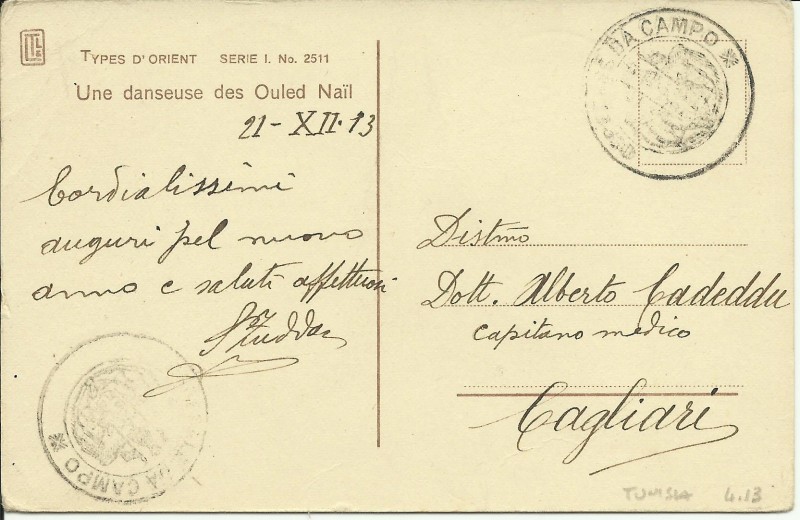 TYPES D'ORIENT SERIE I. No. 2511
Une danseuse des Ouled Naïl
21-XII-13
Cordialissimi
auguri pel nuovo
anno e saluti affettuosi
DA CAMPO *
Distmo
Dott. Alberto Cadeddu
capitano medico
Cagliari
DA CAMPO *
TUNISIA 4.13